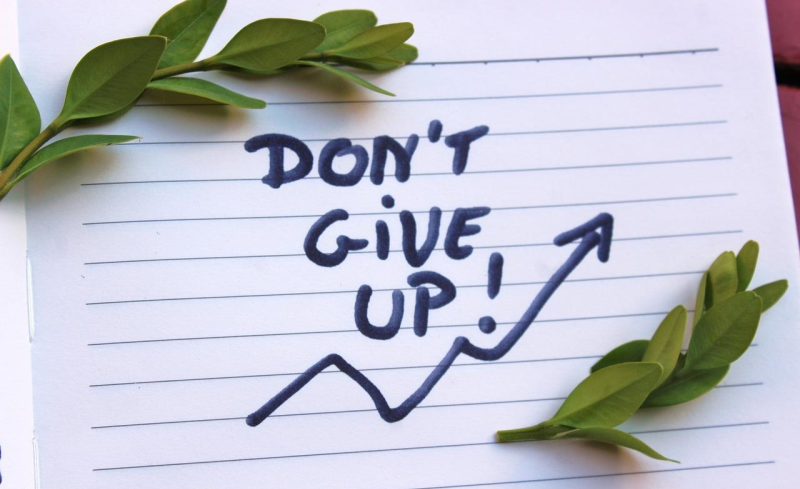 DON'T
GiVE
UP!